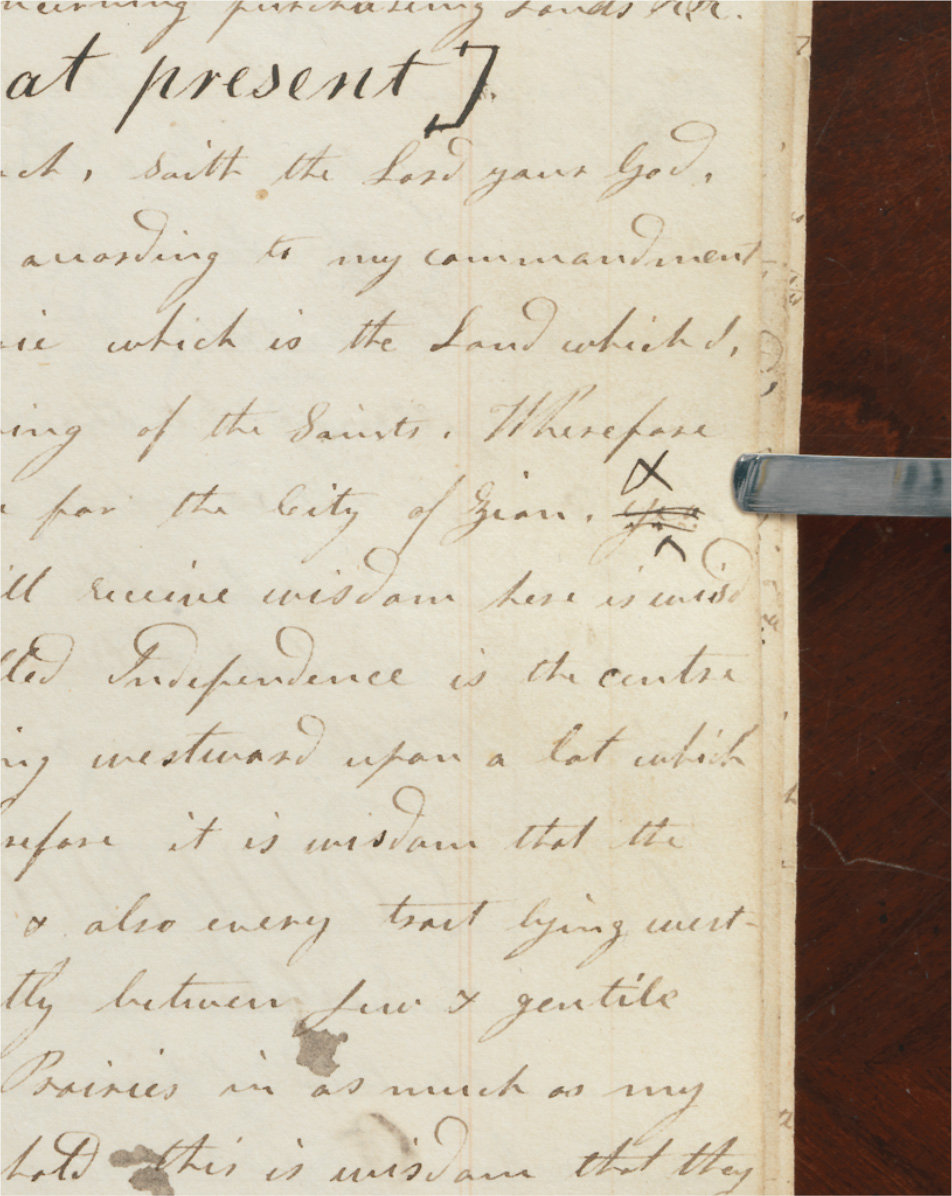 ncerning purchasing Lands &c.
at present].
ck, saith the Lord your God,
according to my commandment
which is the Land which I,
ing of the Saints. Wherefore
for the City of Zion. yea
&
ill receive wisdom here is wisd
lled Independence is the centre
ng westward upon a lot which
refore it is wisdom that the
& also every tract lying west-
tly between Jew & gentile
Prairies in as much as my
hold this is wisdom that they